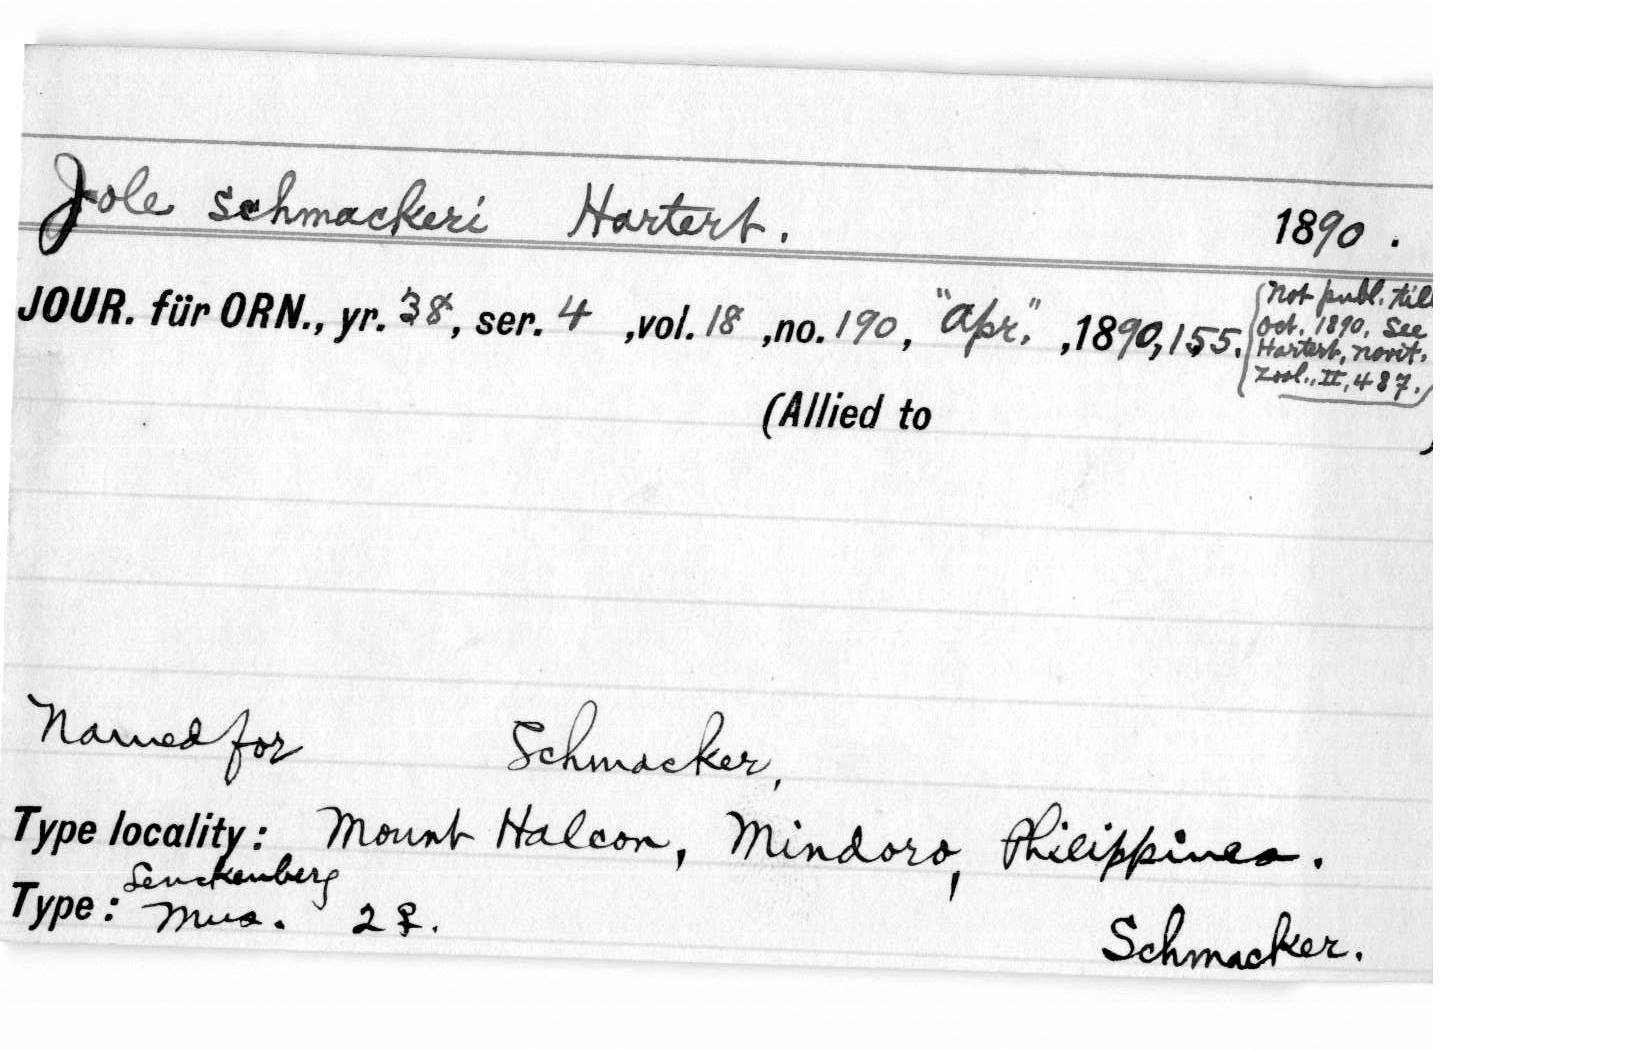 Jole schmackeri Hartert. 1890.
JOUR. für ORN., yr. 38, ser. 4 ,vol. 18 ,no. 190, "Apr." ,1890, 155.
(Not publ. till
Oct. 1890. See
Hartert, Novit.
Zool., II, 487.)
(Allied to )
Named for Schmacker,
Type locality: Mount Halcon, Mindoro, Philippines.
Senckenberg
Type: Mus. 2 ♀. Schmacker.